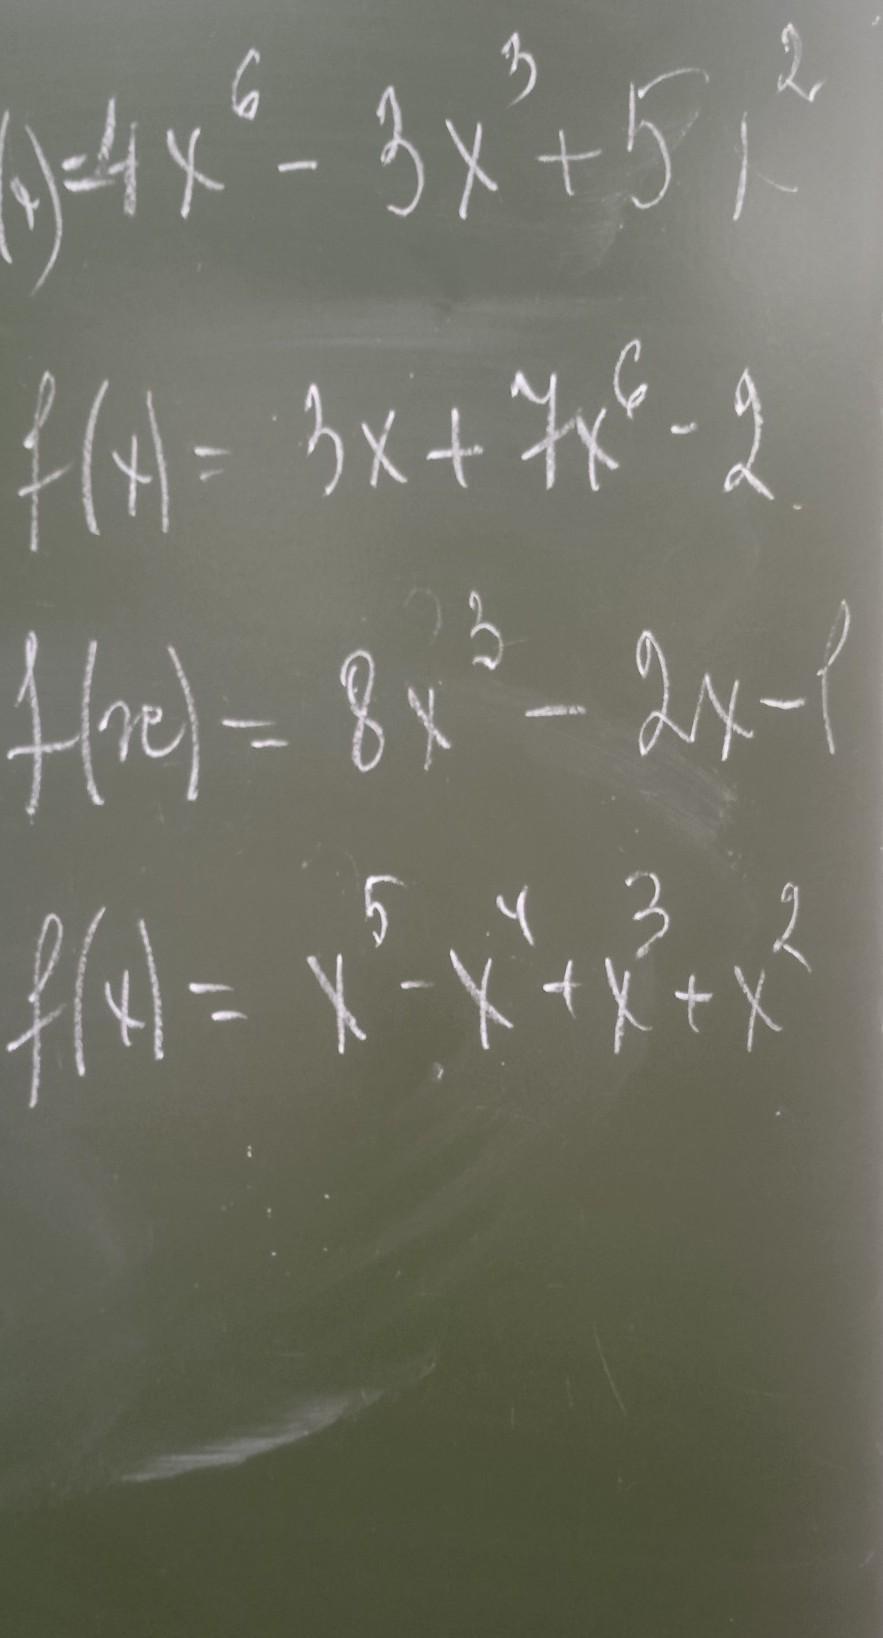 (x)=4x⁶ - 3x³ + 5x²
f(x) = 3x + 7x⁶ - 2
f(x) = 8x³ - 2x - 1
f(x) = x⁵ - x⁴ + x³ + x²